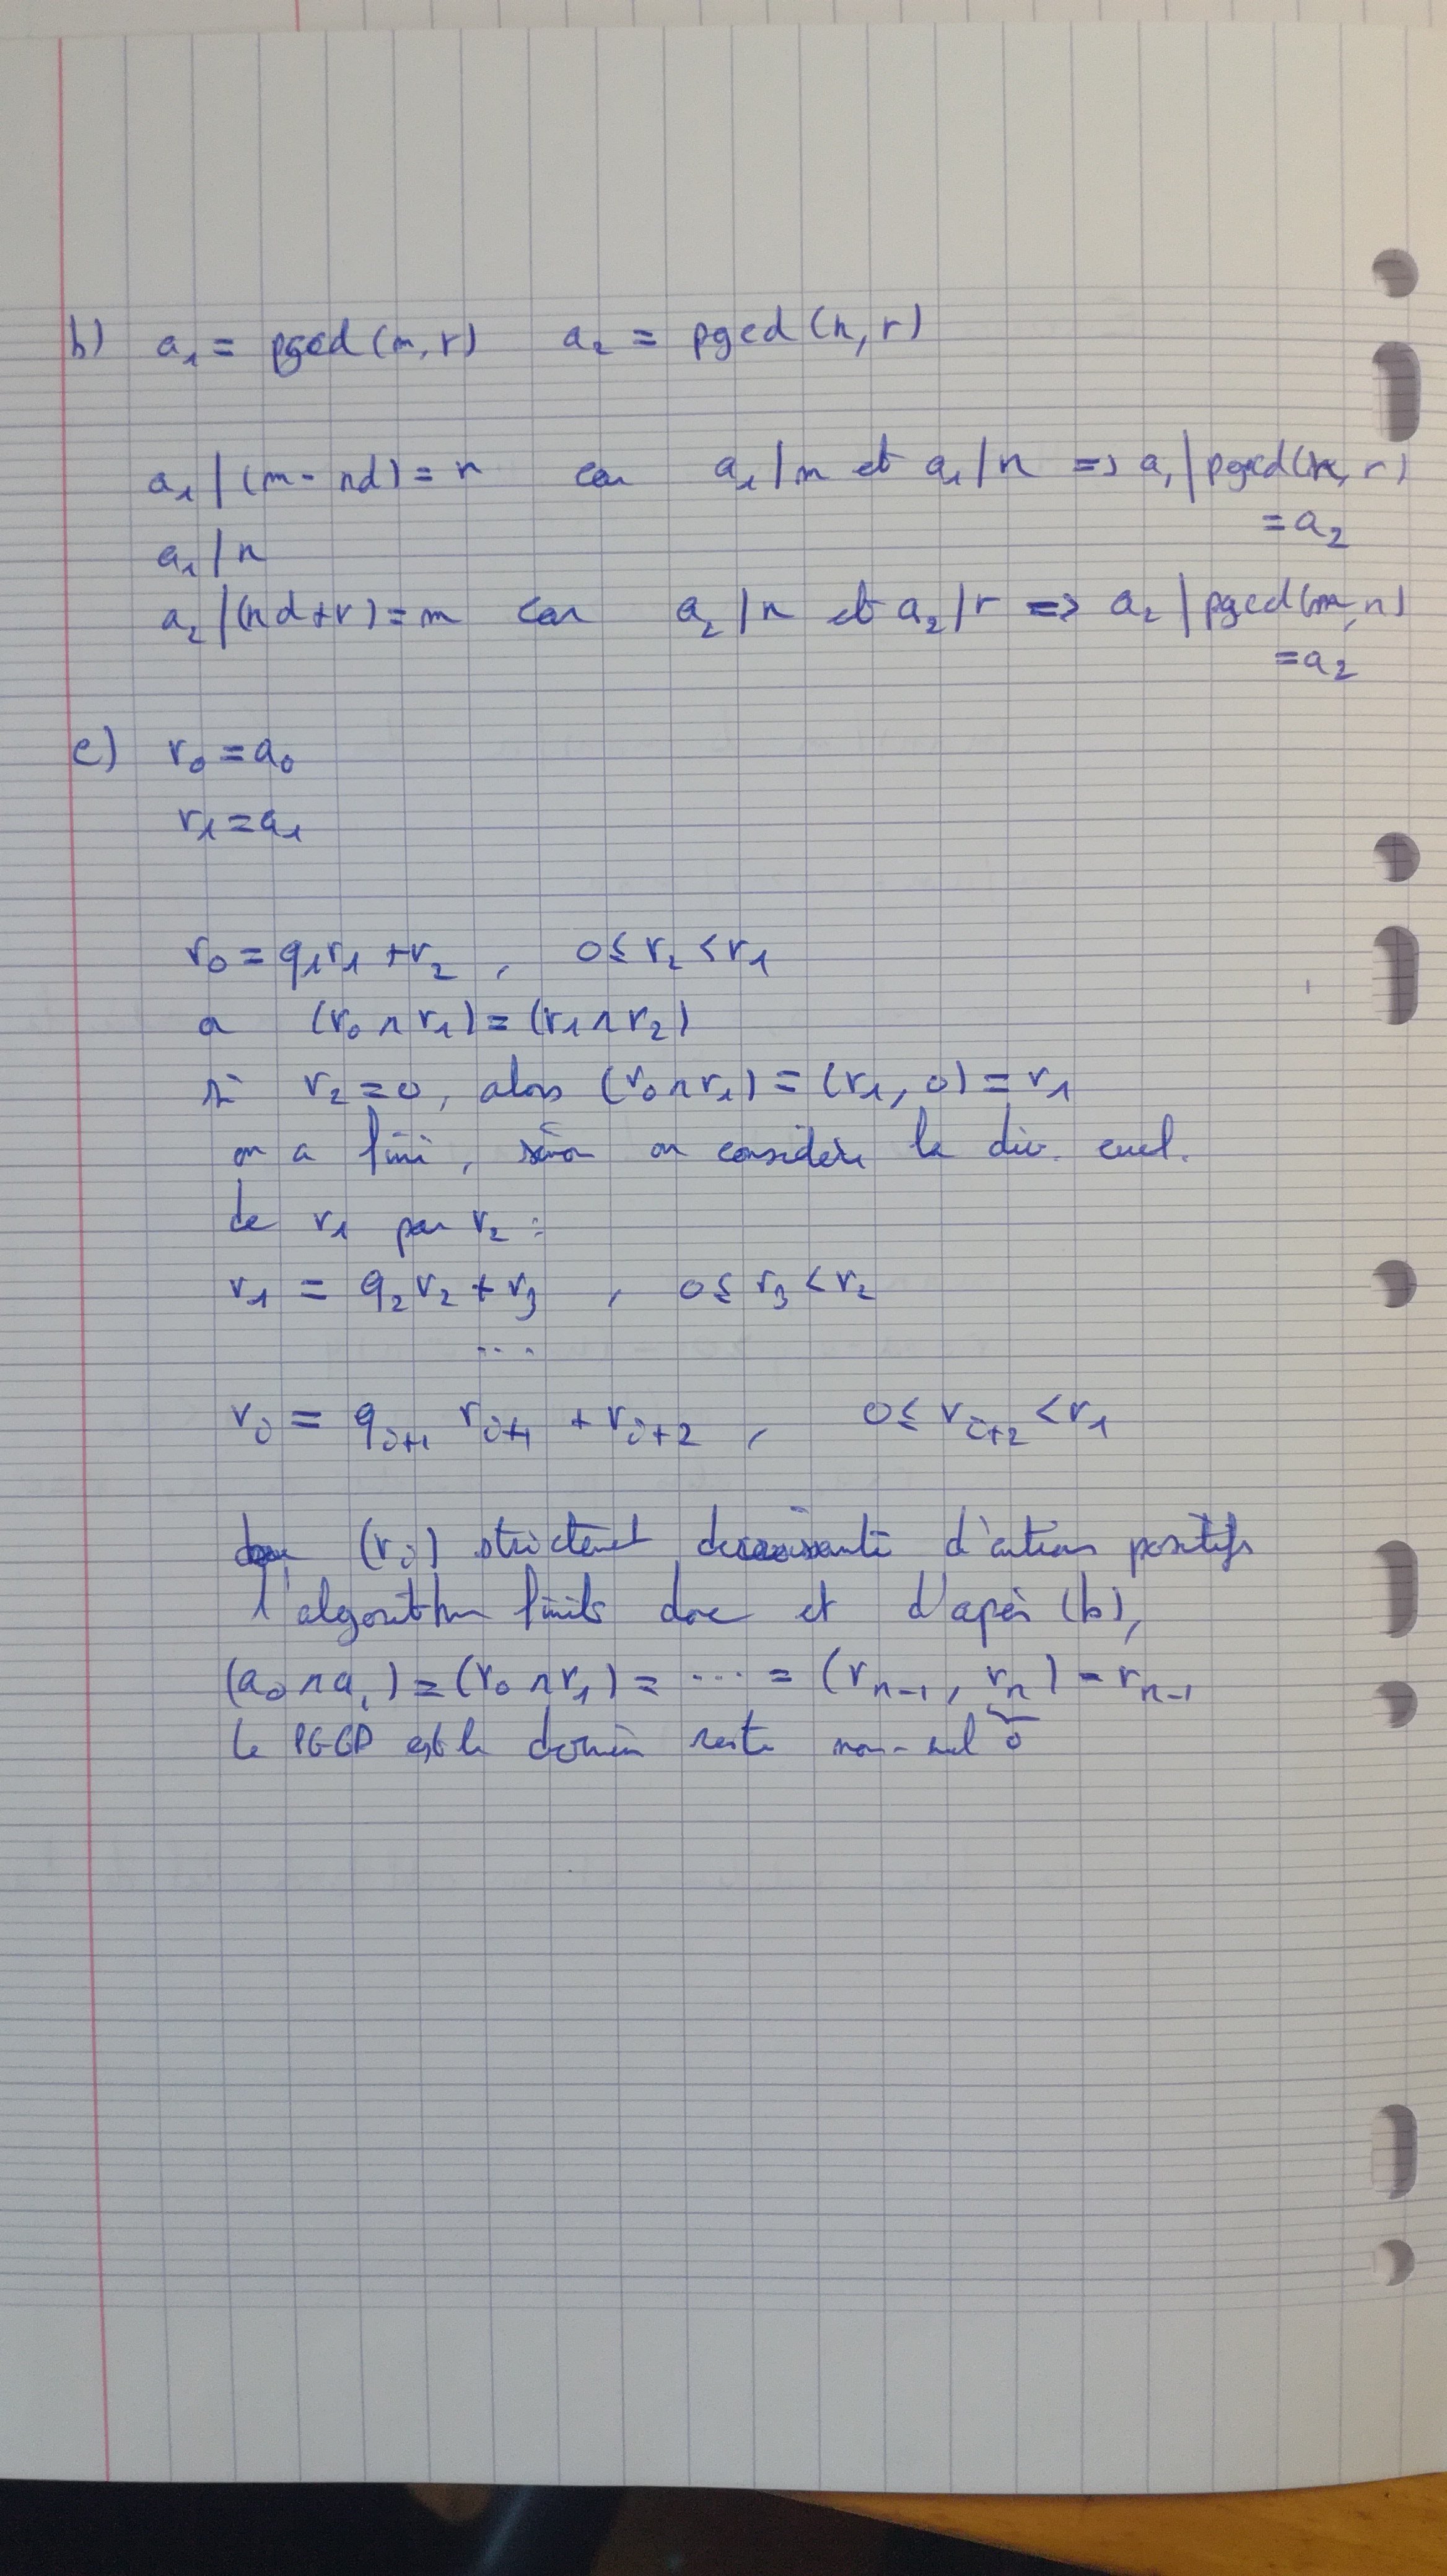 b) a₁ = pgcd(m, r) a₂ = pgcd(n, r)
a₁ | (m - nd) = r car a₁ | m et a₁ | n => a₁ | pgcd(n, r)
= a₂
a₁ | n
a₂ | (nd + r) = m car a₂ | n et a₂ | r => a₂ | pgcd(m, n)
= a₂
c) r₀ = a₀
r₁ = a₁
r₀ = q₁r₁ + r₂ , 0 ≤ r₂ < r₁
a (r₀ ∧ r₁) = (r₁ ∧ r₂)
si r₂ = 0, alors (r₀ ∧ r₁) = (r₁, 0) = r₁
on a fini, sinon on considère la div. eucl.
de r₁ par r₂ :
r₁ = q₂r₂ + r₃ , 0 ≤ r₃ < r₂
...
rᵢ = qᵢ₊₁ rᵢ₊₁ + rᵢ₊₂ , 0 ≤ rᵢ₊₂ < r₁
(rᵢ) strictement decroissante d'entiers positifs
l'algorithme finit donc et d'après (b),
(a₀ ∧ a₁) = (r₀ ∧ r₁) = ... = (rₙ₋₁, rₙ) = rₙ₋₁
le PGCD est le dernier reste non-nul 0